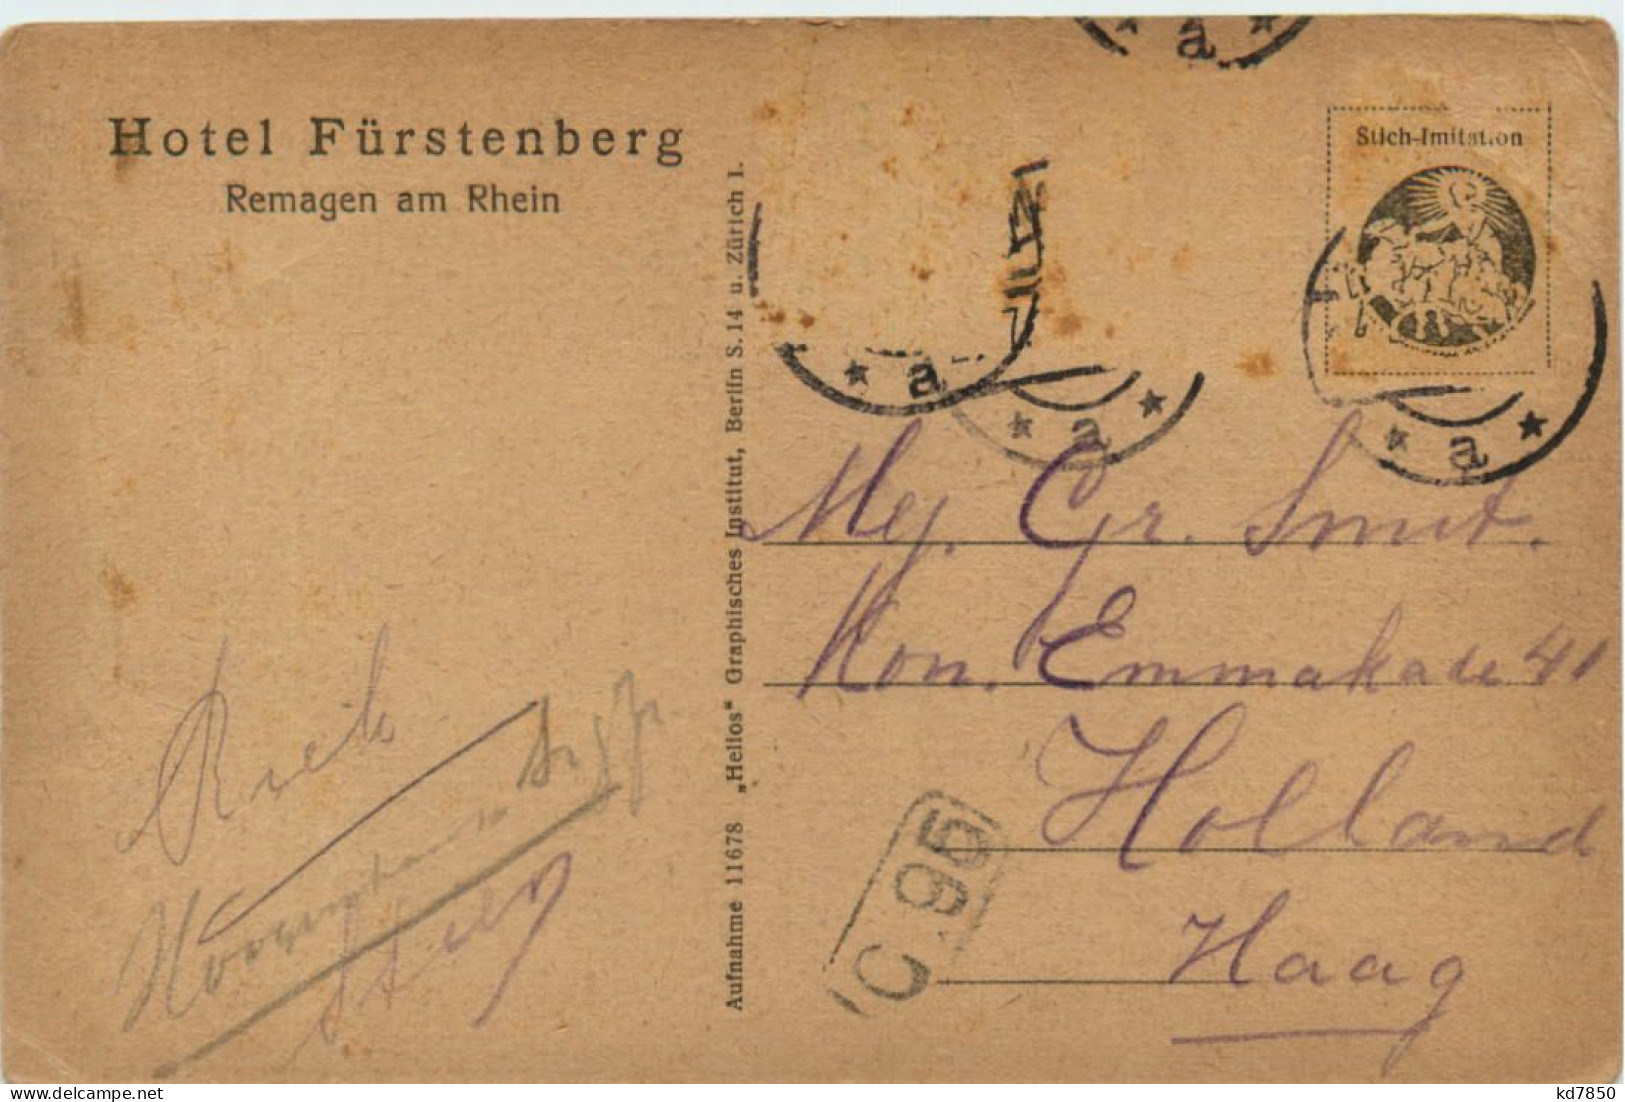 Hotel Fürstenberg
Remagen am Rhein
Stich-Imitation
a
a
a
a
Aufnahme 11678 „Helios" Graphisches Institut, Berlin S. 14 u. Zürich 1.
Mej. Gr. Smit.
Kon. Emmakade 41
Holland
Haag
C 95
kd7850